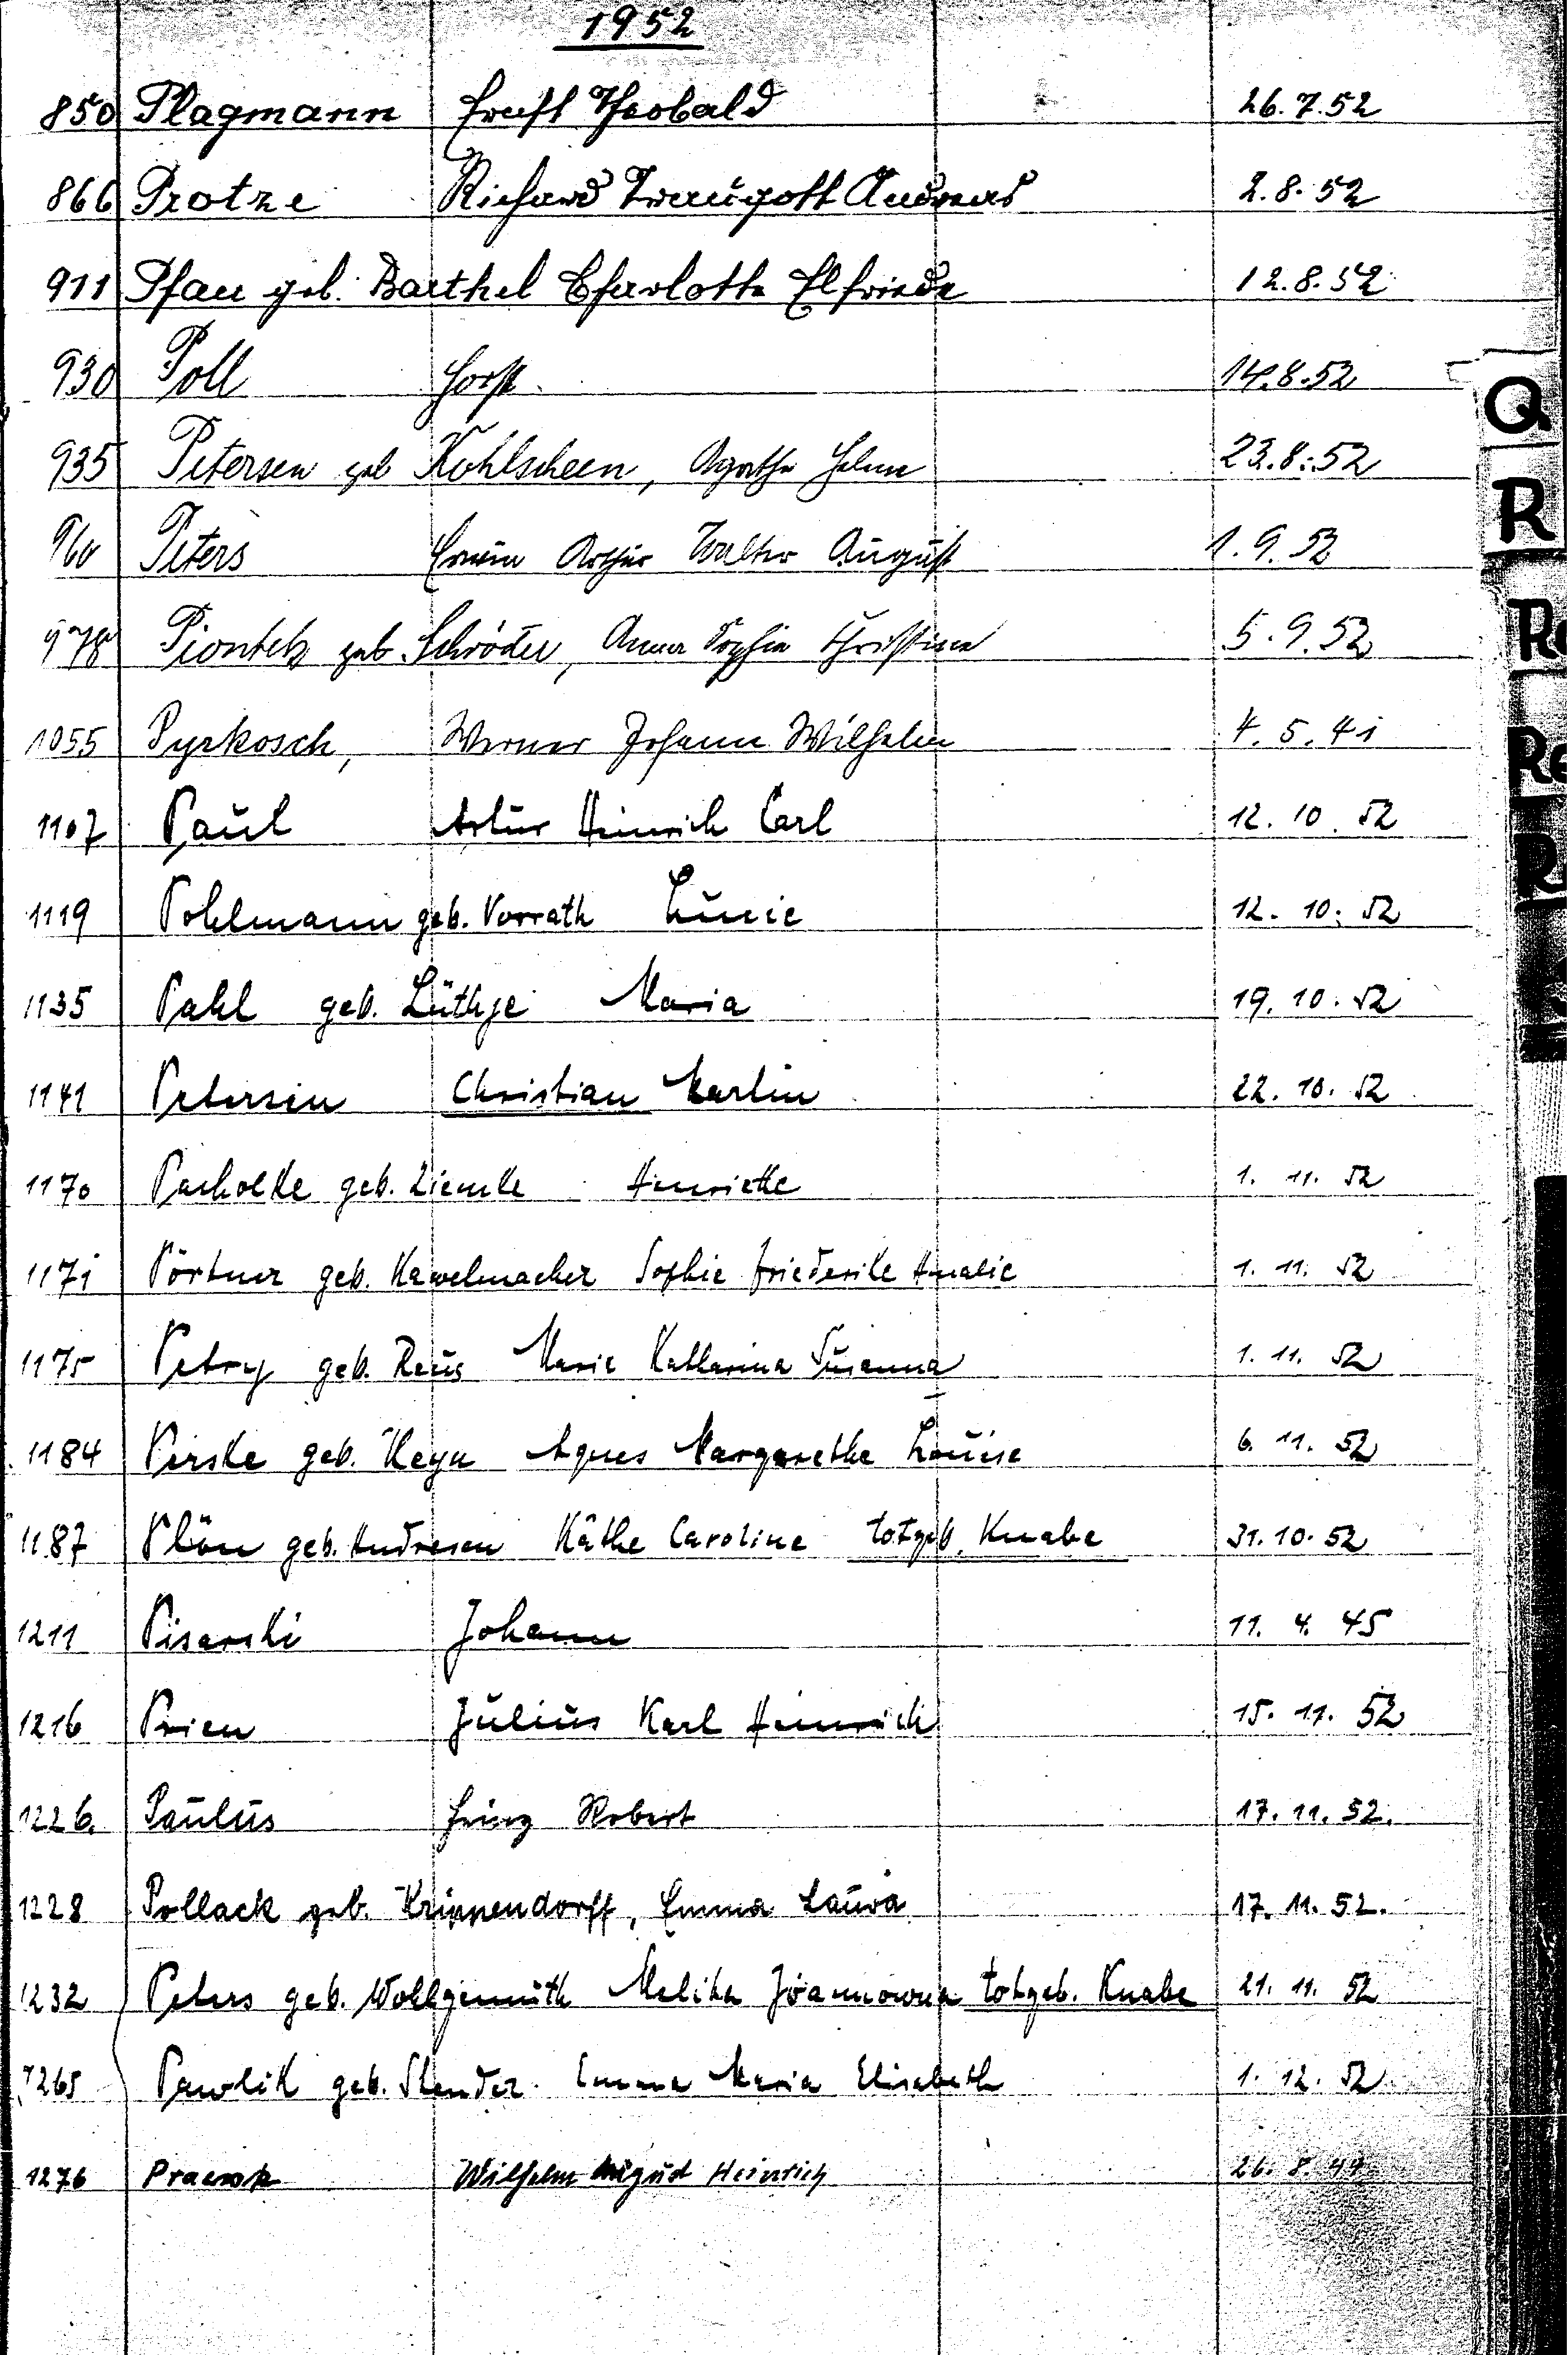 1952
850 Plagmann Ernst Theobald 26.7.52
866 Protze Richard Traugott Andreas 2.8.52
911 Pfau geb. Barthel Charlotte Elfriede 12.8.52
930 Poll Horst 14.8.52
935 Petersen geb Kohlscheen, Agathe Helene 23.8.52
960 Peters Erwin Arthur Walter August 1.9.52
978 Piontek geb. Schröder, Anna Sophie Christine 5.9.52
1055 Pyrkosch, Werner Johann Wilhelm 4.5.41
1107 Paul Artur Heinrich Carl 12.10.52
1119 Pohlmann geb. Vorrath Lucie 12.10.52
1135 Pahl geb. Lüthje Maria 19.10.52
1141 Petersen Christian Martin 22.10.52
1170 Pacholke geb. Ziemke Henriette 1.11.52
1171 Pörtner geb. Hawelmacher Sophie Friederike Amalie 1.11.52
1175 Petry geb. Reus Marie Katharina Susanna 1.11.52
1184 Perske geb. Heyn Agnes Margarethe Louise 6.11.52
1187 Plön geb. Andresen Käthe Caroline totgeb. Knabe 31.10.52
1211 Pisarski Johann 11.4.45
1216 Prien Julius Karl Heinrich 15.11.52
1226. Paulus Heinz Robert 17.11.52.
1228 Pollack geb. Krippendorff, Emma Laura 17.11.52.
1232 Peters geb. Wohlgemuth Melita totgeb. Knabe 21.11.52
1265 Pawlik geb. Stender Emma Maria Elisabeth 1.12.52
1276 Wilhelm August Heinrich 26.8.44
Q
R
Re
Re
R